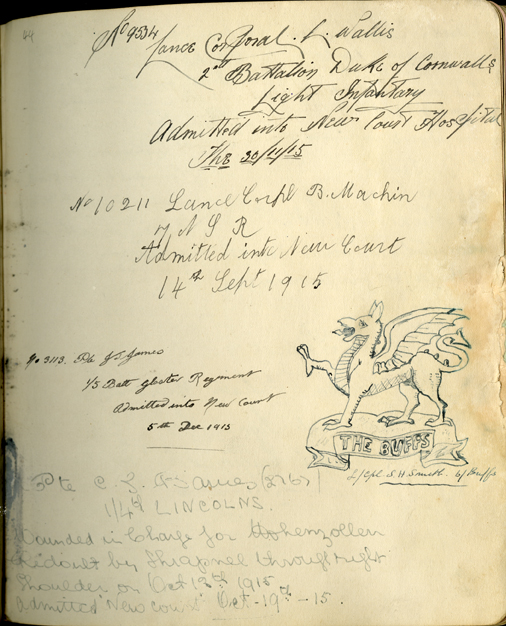 44
No 9534
Lance Corporal. L. Wallis
2nd Battalion Duke of Cornwalls
Light Infantary
Admitted into New Court Hospital
The 30/11/15
No 10211 Lance Corpl B. Machin
7 N S R
Admitted into New Court
14th Sept 1915
No 3113. Pte J James
1/5 Batt gloster Regiment
Admitted into New Court
5th Dec 1915
THE BUFFS
L/Cpl S. H. Smith. 6/Buffs
Pte C. J.
1/4th LINCOLNS.
Wounded in Charge for Hohenzollern
Redoubt by Shrapnel through right
Shoulder on Oct 13th 1915
Admitted "New court" Oct-19th-15.